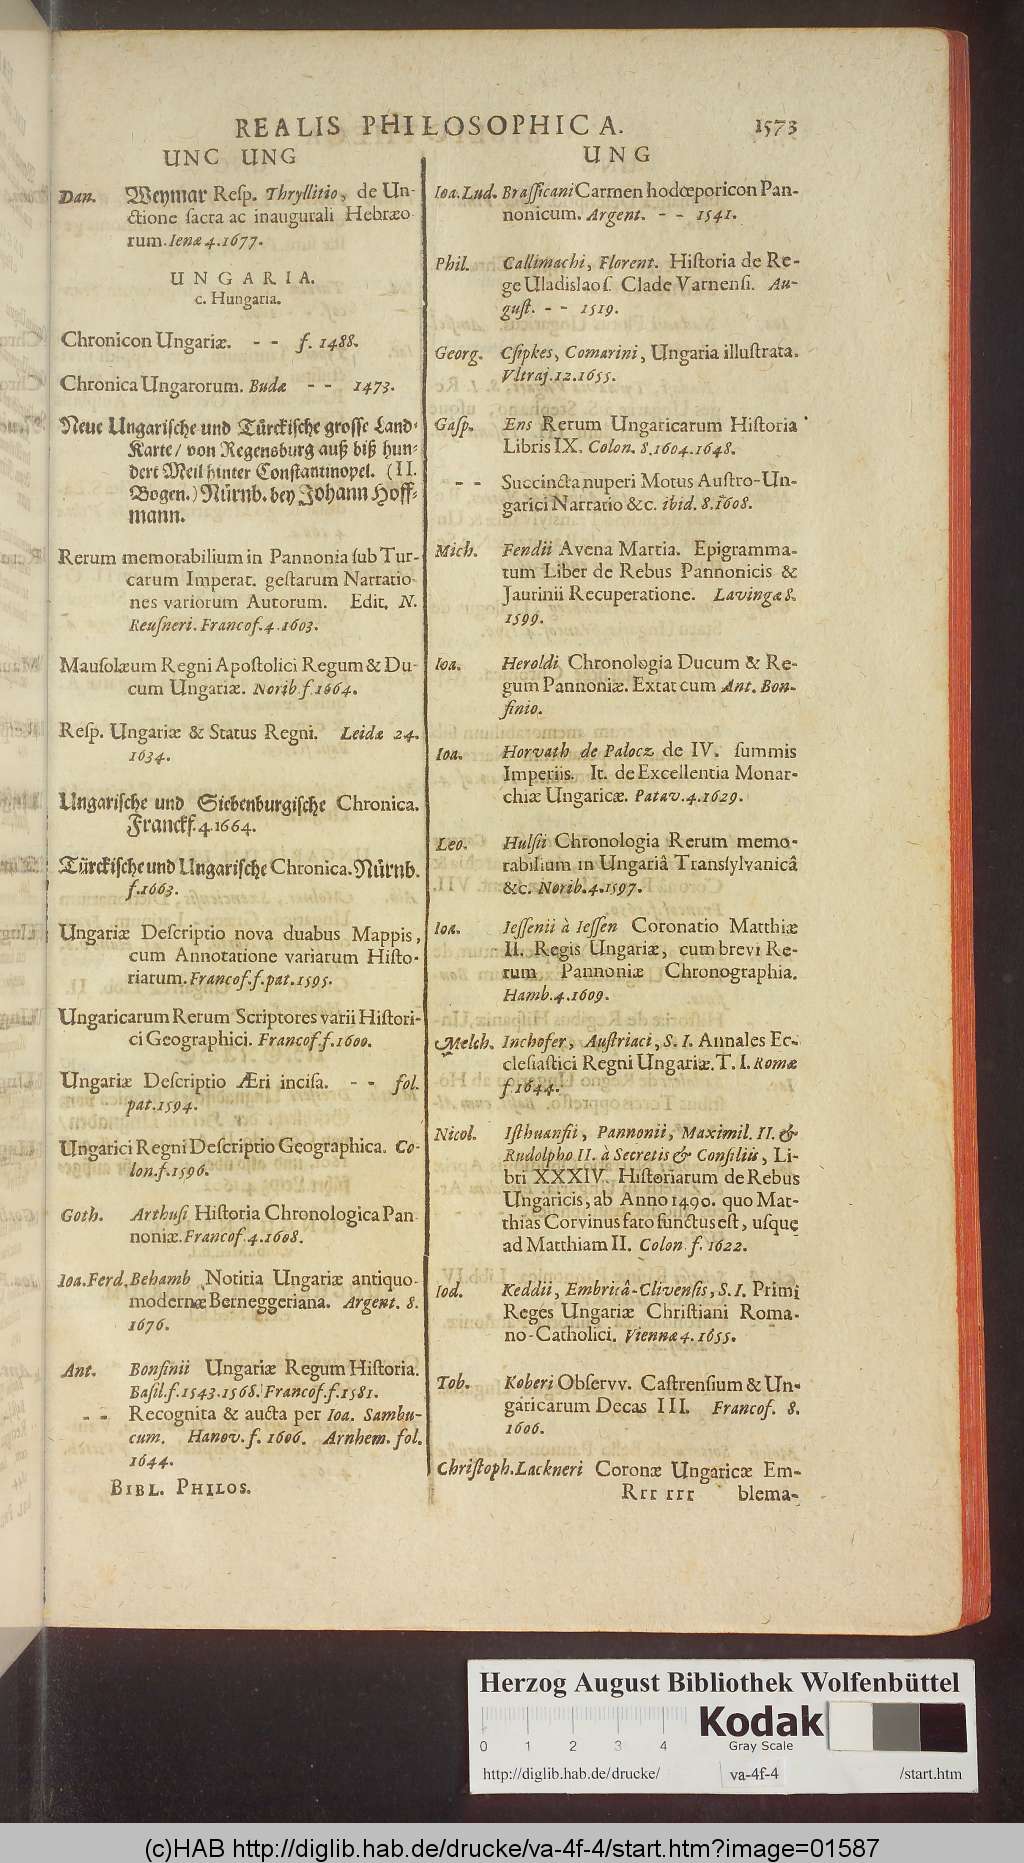 REALIS PHILOSOPHICA.
1573
UNC UNG
Dan. Weymar Resp. Thryllitio, de Un-
ctione sacra ac inaugurali Hebræo-
rum. Ienæ 4. 1677.
UNGARIA.
c. Hungaria.
Chronicon Ungariæ. - - f. 1488.
Chronica Ungarorum. Budæ - - 1473.
Neue Ungarische und Türckische grosse Land-
Karte/ von Regensburg auß biß hun-
dert Meil hinter Constantinopel. (II.
Bogen.) Nürnb. bey Johann Hoff-
mann.
Rerum memorabilium in Pannonia sub Tur-
carum Imperat. gestarum Narratio-
nes variorum Autorum. Edit. N.
Reusneri. Francof. 4. 1603.
Mausolæum Regni Apostolici Regum & Du-
cum Ungariæ. Norib. f. 1664.
Resp. Ungariæ & Status Regni. Leidæ 24.
1634.
Ungarische und Siebenburgische Chronica.
Franckf. 4. 1664.
Türckische und Ungarische Chronica. Nürnb.
f. 1663.
Ungariæ Descriptio nova duabus Mappis,
cum Annotatione variarum Histo-
riarum. Francof. f. pat. 1595.
Ungaricarum Rerum Scriptores varii Histori-
ci Geographici. Francof. f. 1600.
Ungariæ Descriptio Æri incisa. - - fol.
pat. 1594.
Ungarici Regni Descriptio Geographica. Co-
lon. f. 1596.
Goth. Arthusi Historia Chronologica Pan-
noniæ. Francof. 4. 1608.
Ioa. Ferd. Behamb Notitia Ungariæ antiquo-
modernæ Berneggeriana. Argent. 8.
1676.
Ant. Bonfinii Ungariæ Regum Historia.
Basil. f. 1543. 1568. Francof. f. 1581.
- - Recognita & aucta per Ioa. Sambu-
cum. Hanov. f. 1606. Arnhem. fol.
1644.
BIBL. PHILOS.
UNG
Ioa. Lud. Brassicani Carmen hodœporicon Pan-
nonicum. Argent. - - 1541.
Phil. Callimachi, Florent. Historia de Re-
ge Uladislao s. Clade Varnensi. Au-
gust. - - 1519.
Georg. Csipkes, Comarini, Ungaria illustrata.
Vltraj. 12. 1655.
Gasp. Ens Rerum Ungaricarum Historia
Libris IX. Colon. 8. 1604. 1648.
- - Succincta nuperi Motus Austro-Un-
garici Narratio &c. ibid. 8. 1608.
Mich. Fendii Avena Martia. Epigramma-
tum Liber de Rebus Pannonicis &
Jaurinii Recuperatione. Lavingæ 8.
1599.
Ioa. Heroldi Chronologia Ducum & Re-
gum Pannoniæ. Extat cum Ant. Bon-
finio.
Ioa. Horvath de Palocz de IV. summis
Imperiis. It. de Excellentia Monar-
chiæ Ungaricæ. Patav. 4. 1629.
Leo. Hulsii Chronologia Rerum memo-
rabilium in Ungariâ Transylvanicâ
&c. Norib. 4. 1597.
Ioa. Iessenii à Iessen Coronatio Matthiæ
II. Regis Ungariæ, cum brevi Re-
rum Pannoniæ Chronographia.
Hamb. 4. 1609.
Melch. Inchofer, Austriaci, S. I. Annales Ec-
clesiastici Regni Ungariæ. T. I. Romæ
f. 1644.
Nicol. Isthuansii, Pannonii, Maximil. II. &
Rudolpho II. à Secretis & Consiliis, Li-
bri XXXIV. Historiarum de Rebus
Ungaricis, ab Anno 1490. quo Mat-
thias Corvinus fato functus est, usque
ad Matthiam II. Colon. f. 1622.
Iod. Keddii, Embricâ-Clivensis, S. I. Primi
Reges Ungariæ Christiani Roma-
no-Catholici. Viennæ 4. 1655.
Tob. Koberi Observv. Castrensium & Un-
garicarum Decas III. Francof. 8.
1606.
Christoph. Lackneri Coronæ Ungaricæ Em-
Rrr rrr blema-
Herzog August Bibliothek Wolfenbüttel
0 1 2 3 4
Kodak
Gray Scale
http://diglib.hab.de/drucke/ va-4f-4 /start.htm
(c)HAB http://diglib.hab.de/drucke/va-4f-4/start.htm?image=01587